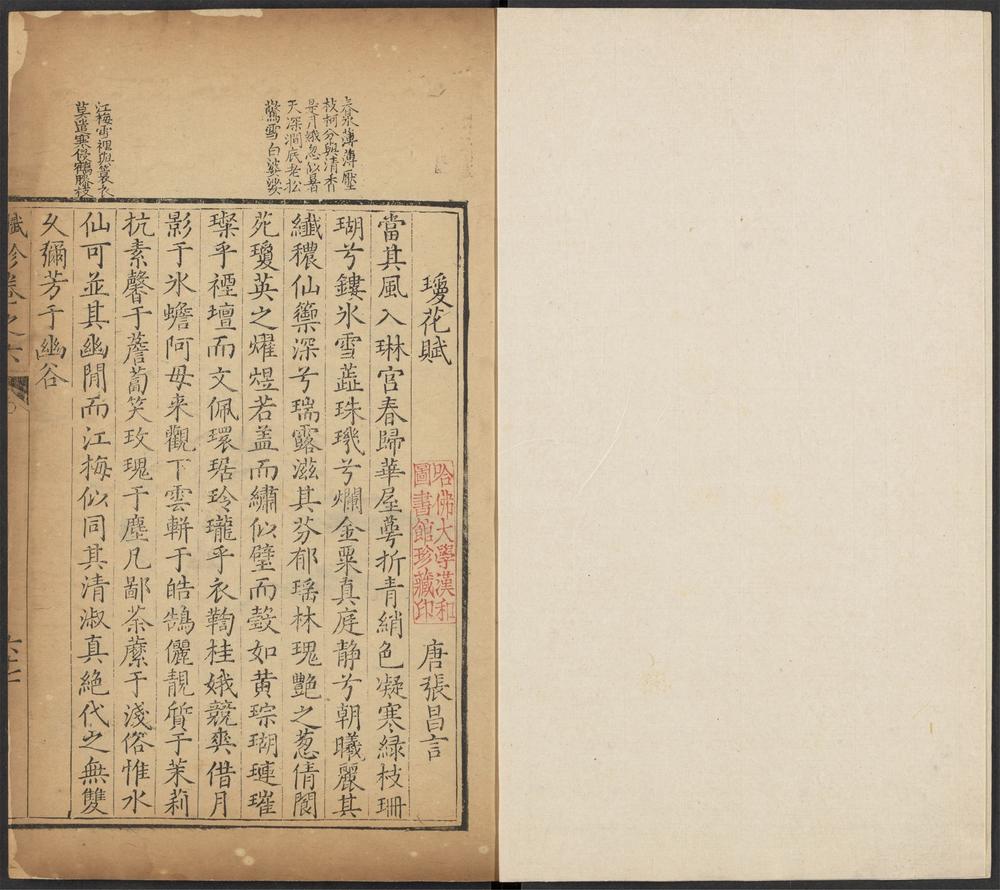 瓊花賦
唐張昌言
哈佛大學漢和
圖書館珍藏印
當其風入琳宫春歸華屋蕚折青綃色凝寒緑枝珊
瑚兮鏤氷雪蘂珠璣兮爛金粟真庭静兮朝曦麗其
纖穠仙籞深兮瑞露滋其芬郁瑶林瑰艷之葱倩閬
苑瓊英之燿煜若盖而繡似璧而瑴如黄琮瑚璉璀
璨乎禋壇而文佩環琚玲瓏乎衣鞫桂娥競爽借月
影于氷蟾阿母来觀下雲軿于皓鵠儷靚質于茉莉
抗素馨于薝蔔笑玫瑰于塵凡鄙荼䕷于淺俗惟水
仙可並其幽閒而江梅似同其清淑真絶代之無雙
乆彌芳于幽谷
春氷薄薄壓
枝柯分與清香
是月娥忽似暑
天深澗底老松
驚雪白婆娑
江梅雪裡與蓑衣
莫遣寒侵鶴膝枝
珍卷之六